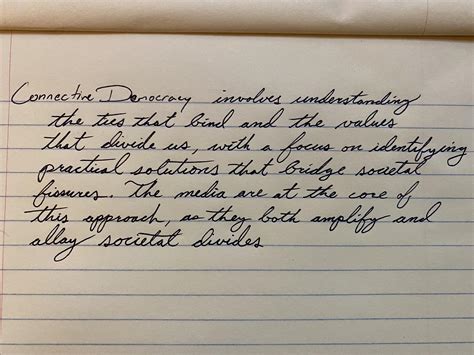 Connective Democracy involves understanding
the ties that bind and the values
that divide us, with a focus on identifying
practical solutions that bridge societal
fissures. The media are at the core of
this approach, as they both amplify and
allay societal divides